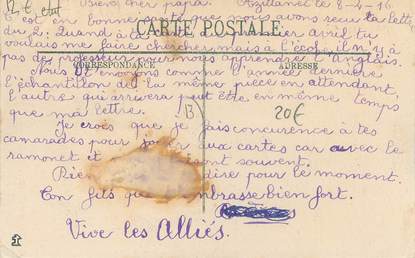 12 € état
Bien cher papa. Azillanet le 8-4-16
C'est en bonne santé que nous avons reçu ta lettre
CARTE POSTALE
du 2. Quand à avril tu
voulais me faire chercher, mais à l'école il n'y a
pas de professeur pour nous apprendre l'anglais.
CORRESPONDANCE
ADRESSE
Nous t'envoyons comme l'année dernière
l'échantillon de la même pièce en attendant,
l'autre qui arrivera peut être en même temps
que ma lettre.
13
20€
Je crois que je fais concurence à tes
camarades pour aux cartes car avec le
ramonet et souvent.
Rien dire pour le moment.
Ton fils qui embrasse bien fort.
Vive les Alliés.